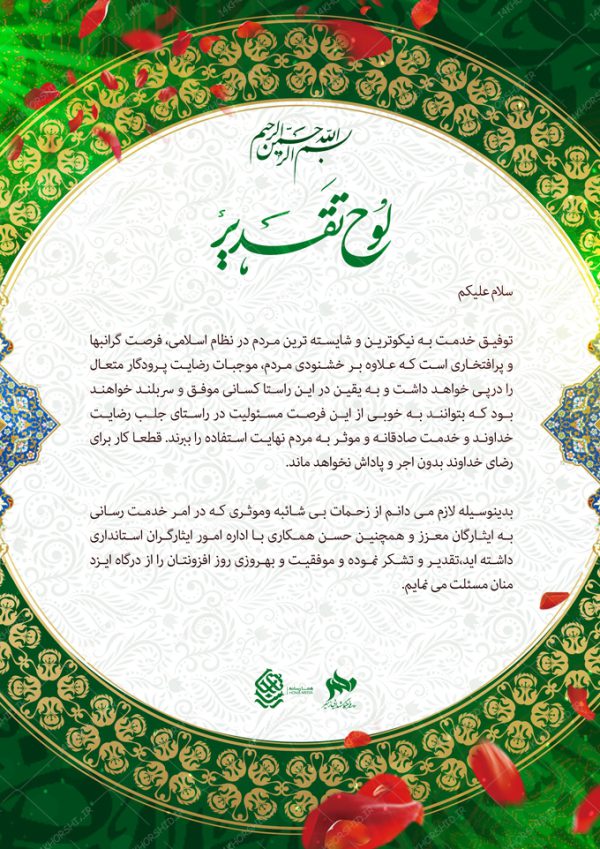 بسم الله الرحمن الرحیم
لوح تقدیر
سلام علیکم
توفیق خدمت به نیکوترین و شایسته ترین مردم در نظام اسلامی، فرصت گرانبها
و پرافتخاری است که علاوه بر خشنودی مردم، موجبات رضایت پرودگار متعال
را درپی خواهد داشت و به یقین در این راستا کسانی موفق و سربلند خواهند
بود که بتوانند به خوبی از این فرصت مسئولیت در راستای جلب رضایت
خداوند و خدمت صادقانه و موثر به مردم نهایت استفاده را ببرند. قطعا کار برای
رضای خداوند بدون اجر و پاداش نخواهد ماند.
بدینوسیله لازم می دانم از زحمات بی شائبه وموثری که در امر خدمت رسانی
به ایثارگان معزز و همچنین حسن همکاری با اداره امور ایثارگران استانداری
داشته اید،تقدیر و تشکر نموده و موفقیت و بهروزی روز افزونتان را از درگاه ایزد
منان مسئلت می نمایم.
14KHORSHID.IR